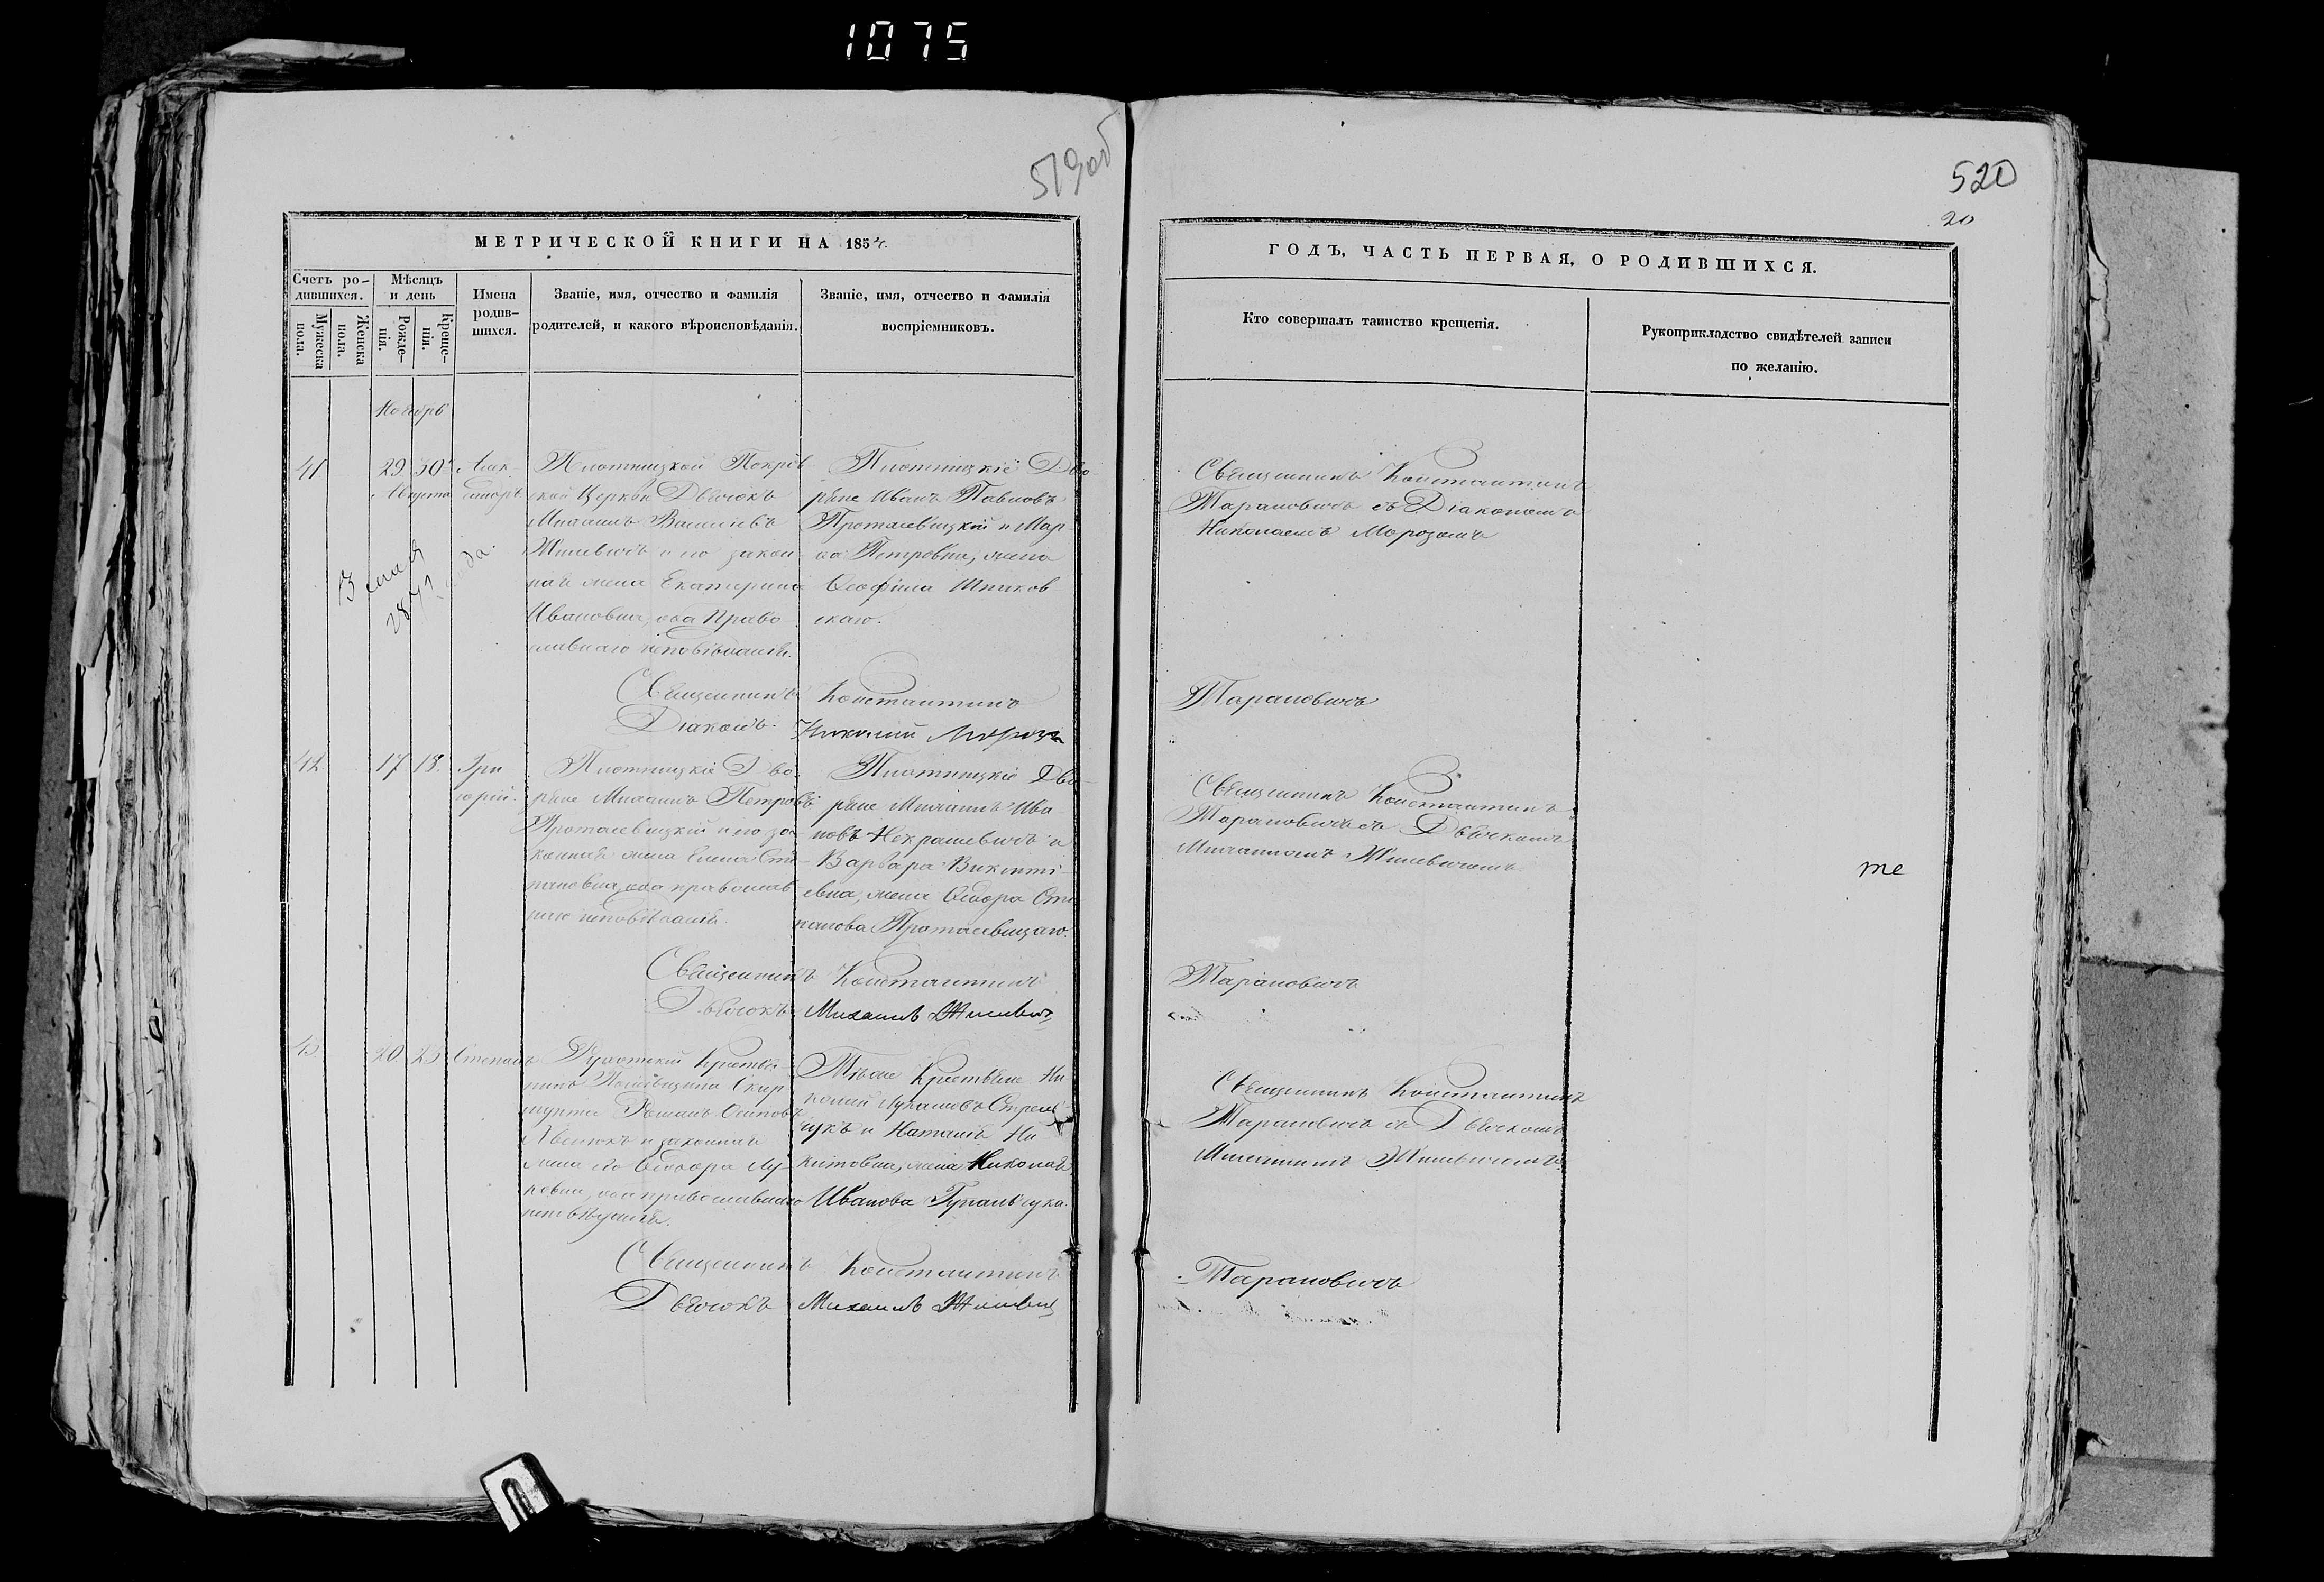 1075
519 об
МЕТРИЧЕСКОЙ КНИГИ НА 1854.
Счетъ ро-
дившихся.
Мужеска
пола.
Женска
пола.
Мѣсяцъ
и день
Рожде-
нія.
Креще-
нія.
Имена
родив-
шихся.
Званіе, имя, отчество и фамилія
родителей, и какого вѣроисповѣданія.
Званіе, имя, отчество и фамилія
воспріемниковъ.
Ноябрь
41
29
30
Алек-
сандръ
Плотницкой Покров
ской Церкви Дьячокъ
Михаилъ Васильевъ
Жилевичъ и его закон
ная жена Екатерина
Ивановна, оба Право
славнаго исповѣданія.
Плотницкіе Дво-
ряне Иванъ Павловъ
Протасевицкій и Мар
Петровна, жена
скаго.
Священникъ Константинъ
Діаконъ Николай Морозъ
42
17
18
Гри
горій.
Плотницкіе Дво
ряне Михаилъ Петровъ
Протасевицкій и его за
конная жена Елена Сте-
пановна, оба православ
наго исповѣданія.
Плотницкіе Дво-
ряне Михаилъ Ива
новъ Некрашевичъ и
Варвара Викенті-
евна, жена Ѳеодора Сте
панова Протасевицкаго.
Священникъ Константинъ
Дьячокъ Михаилъ Жилевичъ
43
20
25
Степанъ
Крестья-
нинъ Помѣщика Скир
мунта Романъ Осиповъ
и законная
жена его Ѳеодора Лу-
кова, оба православнаго
исповѣданія.
Крестьяне Ни-
колай Лукашовъ Стрель
чукъ и Наталія Ни-
китовна, жена Николая
Иванова
Священникъ Константинъ
Дьячокъ Михаилъ Жилевичъ
520
20
ГОДЪ, ЧАСТЬ ПЕРВАЯ, О РОДИВШИХСЯ.
Кто совершалъ таинство крещенія.
Рукоприкладство свидѣтелей записи
по желанію.
Священникъ Константинъ
Тарановичъ съ Діакономъ
Николаемъ Морозомъ
Тарановичъ
Священникъ Константинъ
Тарановичъ съ Дьячкомъ
Михаиломъ Жилевичомъ
те
Тарановичъ
Священникъ Константинъ
Тарановичъ съ Дьячкомъ
Михаиломъ Жилевичомъ
Тарановичъ